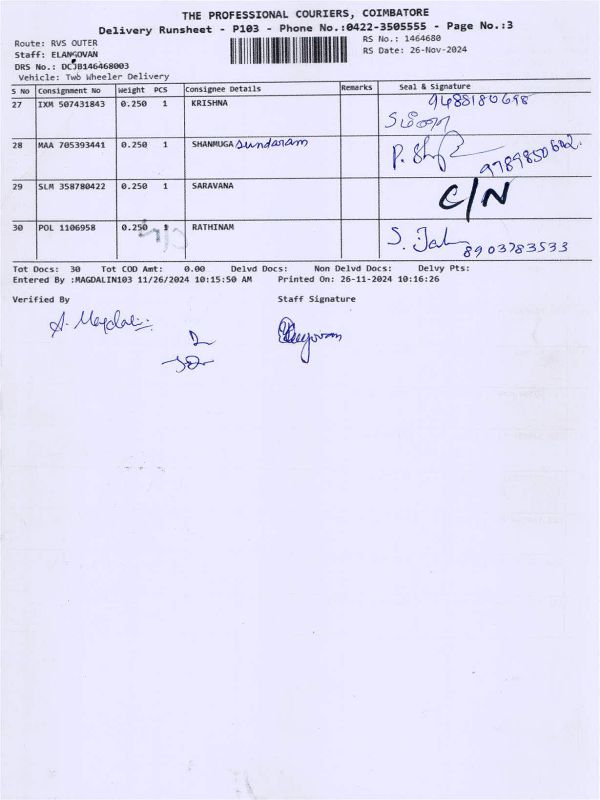 THE PROFESSIONAL COURIERS, COIMBATORE
Delivery Runsheet - P103 - Phone No.:0422-3505555 - Page No.:3
Route: RVS OUTER
RS No.: 1464680
Staff: ELANGOVAN
RS Date: 26-Nov-2024
DRS No.: DCJB146468003
Vehicle: Two Wheeler Delivery
S No Consignment No Weight PCS Consignee Details Remarks Seal & Signature
27 IXM 507431843 0.250 1 KRISHNA
28 MAA 705393441 0.250 1 SHANMUGA Sundaram
29 SLM 358780422 0.250 1 SARAVANA C/N
30 POL 1106958 0.250 1 RATHINAM 8903783533
Tot Docs: 30 Tot COD Amt: 0.00 Delvd Docs: Non Delvd Docs: Delvy Pts:
Entered By :MAGDALIN103 11/26/2024 10:15:50 AM Printed On: 26-11-2024 10:16:26
Verified By Staff Signature